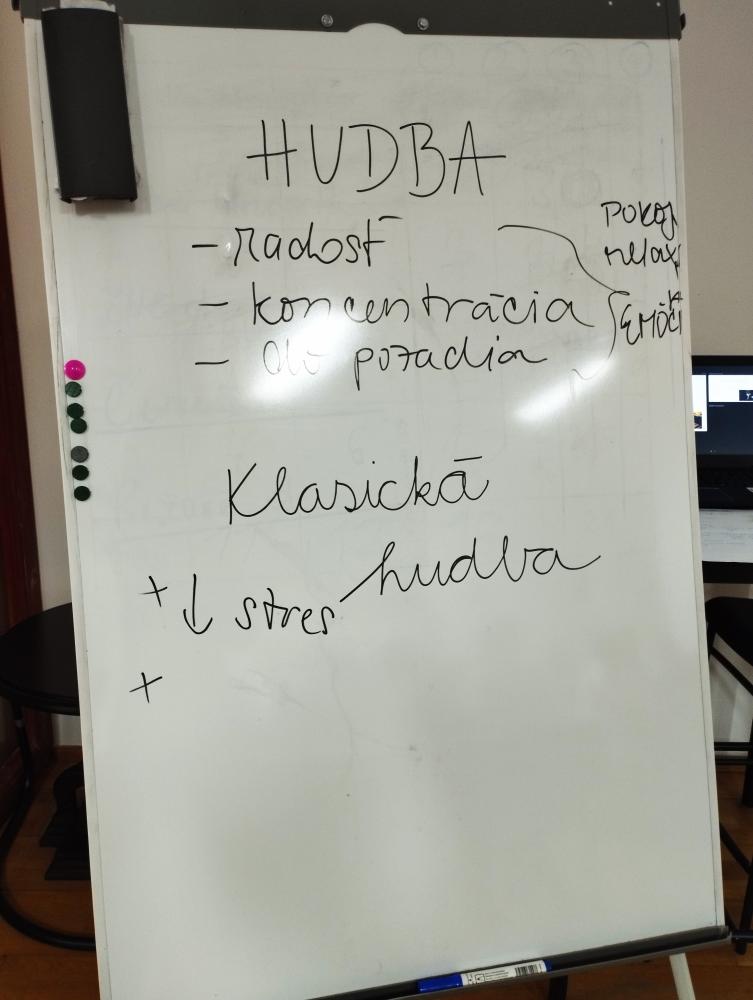 HUDBA
- radosť
- koncentrácia
- do pozadia
pokoj
relax
EMÓCI
Klasická
hudba
+ ↓ stres
+